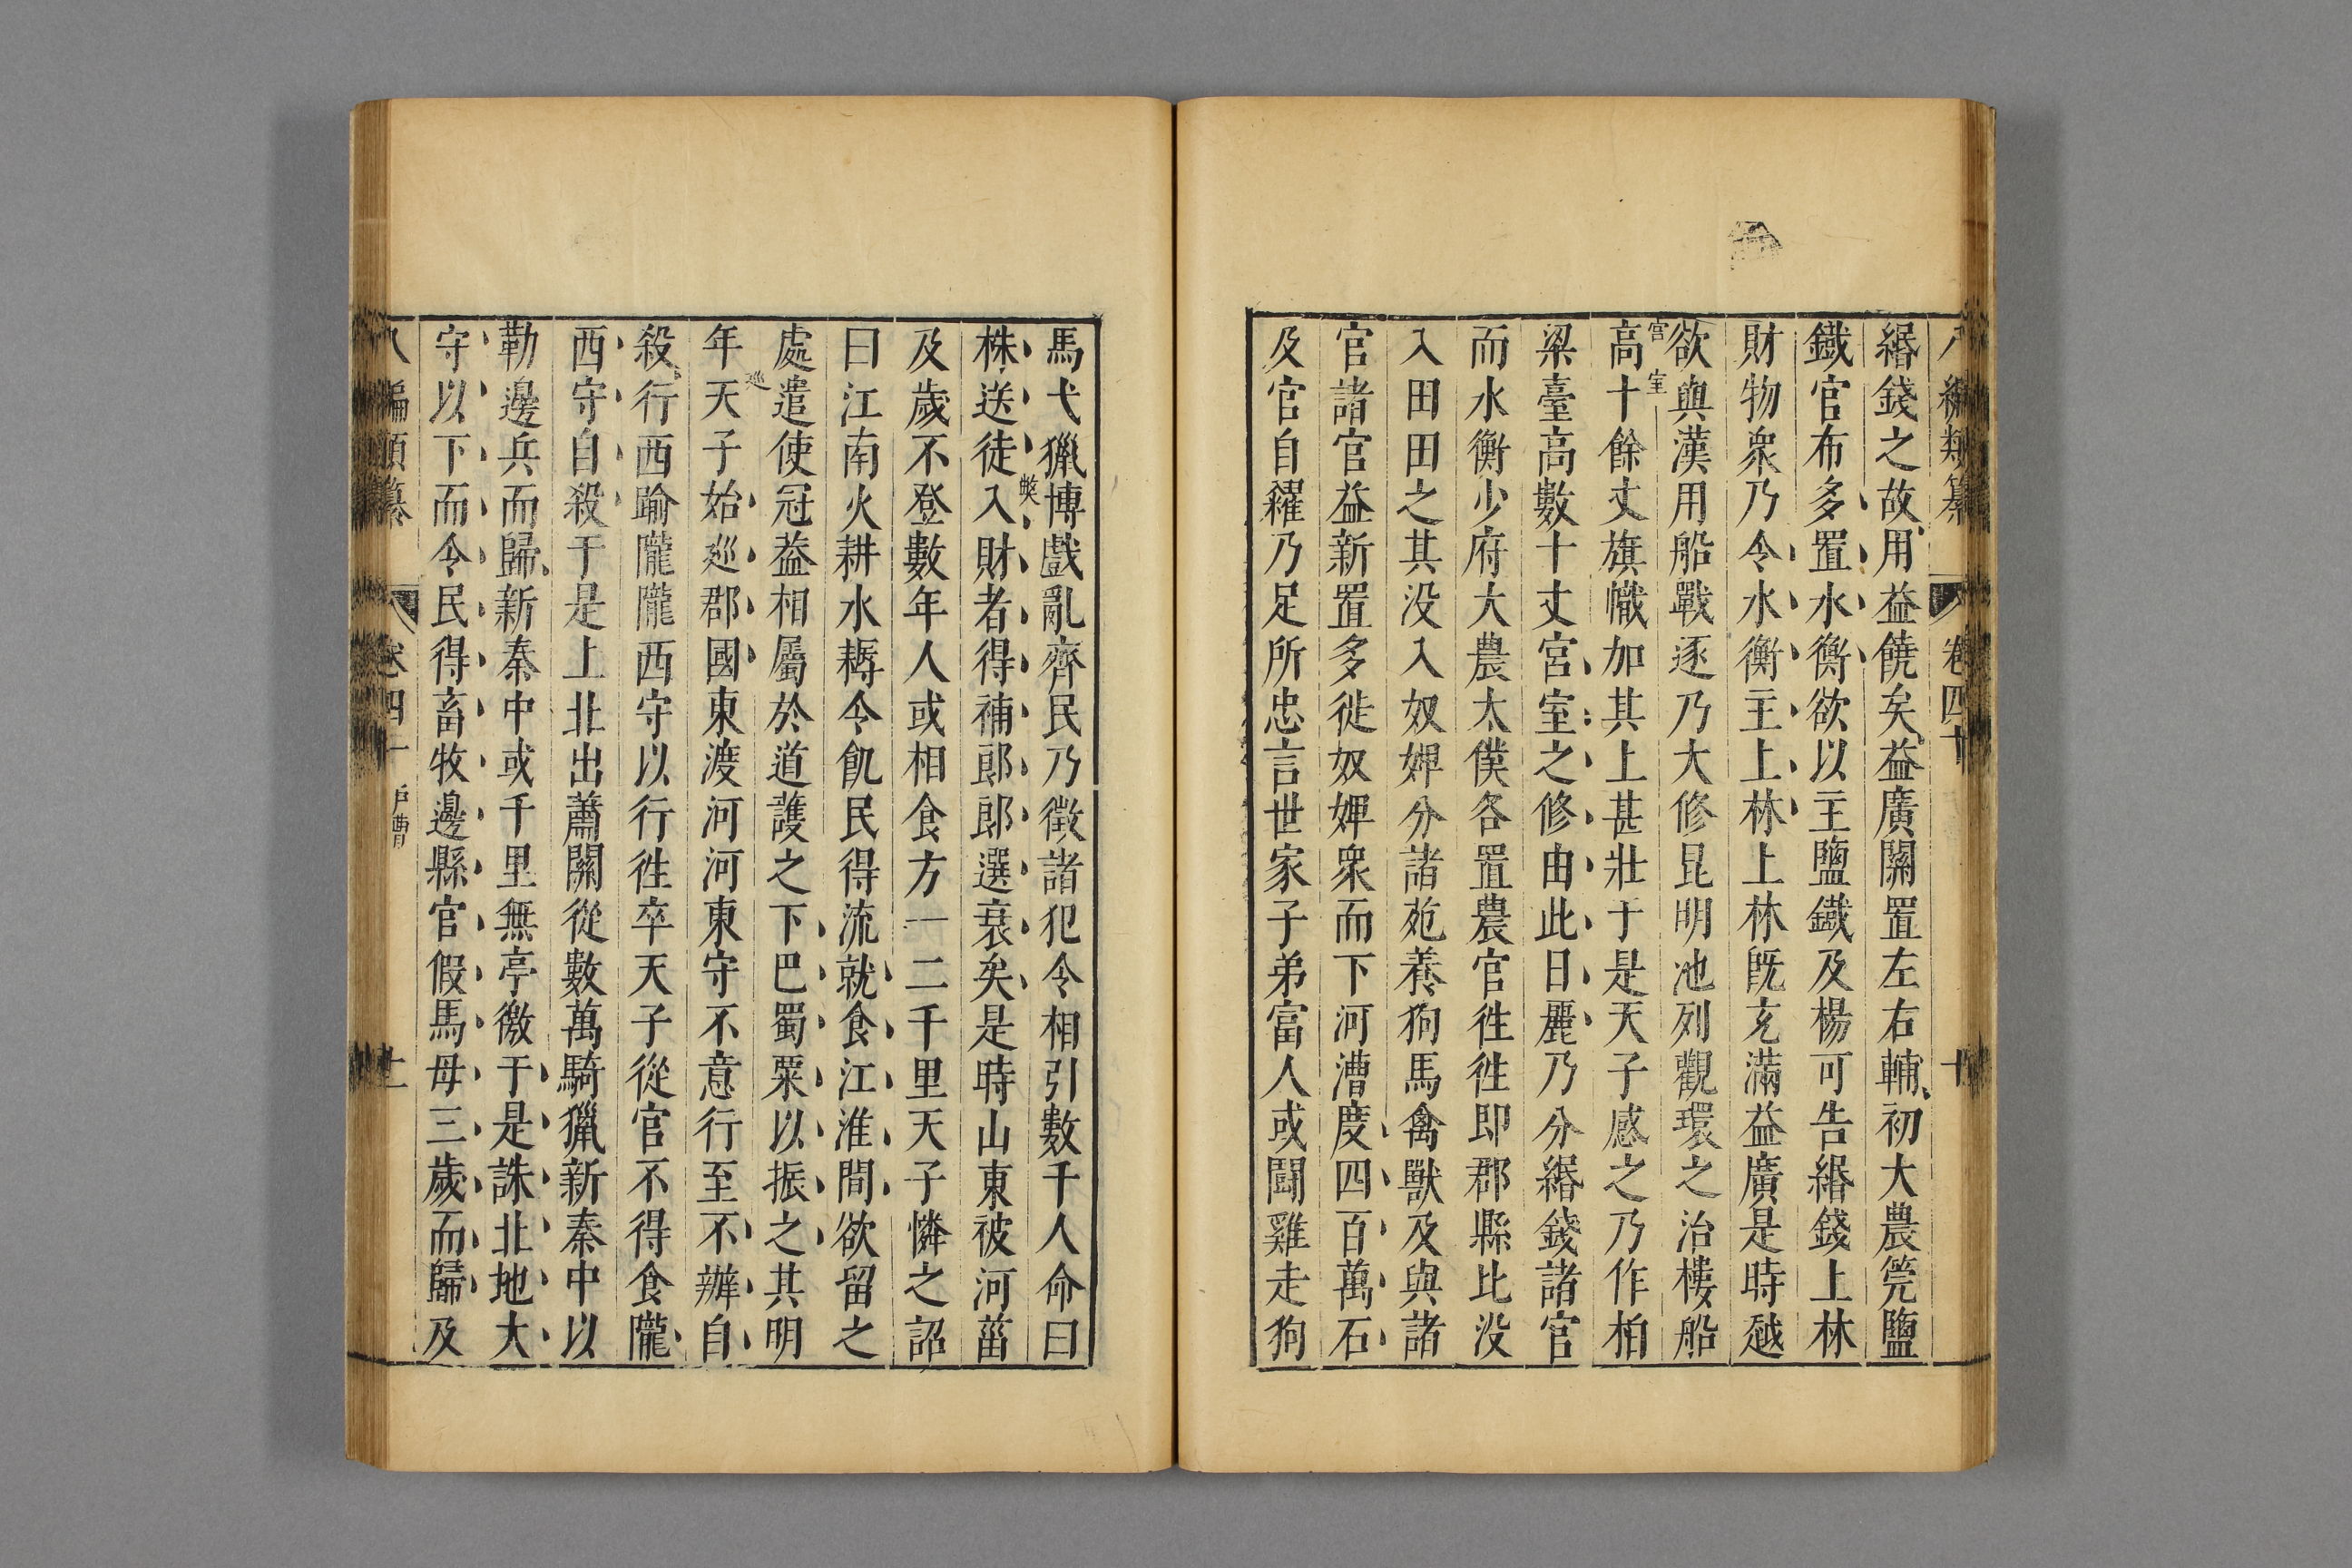 八編類纂 卷四十 十
緡錢之故用益饒矣益廣關置左右輔初大農筦鹽
鐵官布多置水衡欲以主鹽鐵及楊可告緡錢上林
財物衆乃令水衡主上林上林旣充滿益廣是時越
欲與漢用船戰逐乃大修昆明池列觀環之治樓船
宮室
高十餘丈旗幟加其上甚壯于是天子感之乃作柏
梁臺高數十丈宮室之修由此日麗乃分緡錢諸官
而水衡少府大農太僕各置農官徃徃即郡縣比没
入田田之其没入奴婢分諸苑養狗馬禽獸及與諸
官諸官益新置多徙奴婢衆而下河漕度四百萬石
及官自糴乃足所忠言世家子弟富人或鬪雞走狗
馬弋獵博戲亂齊民乃徵諸犯令相引數千人命曰
株送徒入財者得補郎郎選衰矣是時山東被河菑
及歲不登數年人或相食方一二千里天子憐之詔
曰江南火耕水耨令飢民得流就食江淮間欲留之
處遣使冠葢相屬於道護之下巴蜀粟以振之其明
巡
年天子始巡郡國東渡河河東守不意行至不辦自
殺行西踰隴隴西守以行徃卒天子從官不得食隴
西守自殺于是上北出蕭關從數萬騎獵新秦中以
勒邊兵而歸新秦中或千里無亭徼于是誅北地大
守以下而令民得畜牧邊縣官假馬母三歲而歸及
八編類纂 卷四十 戸曹 十一